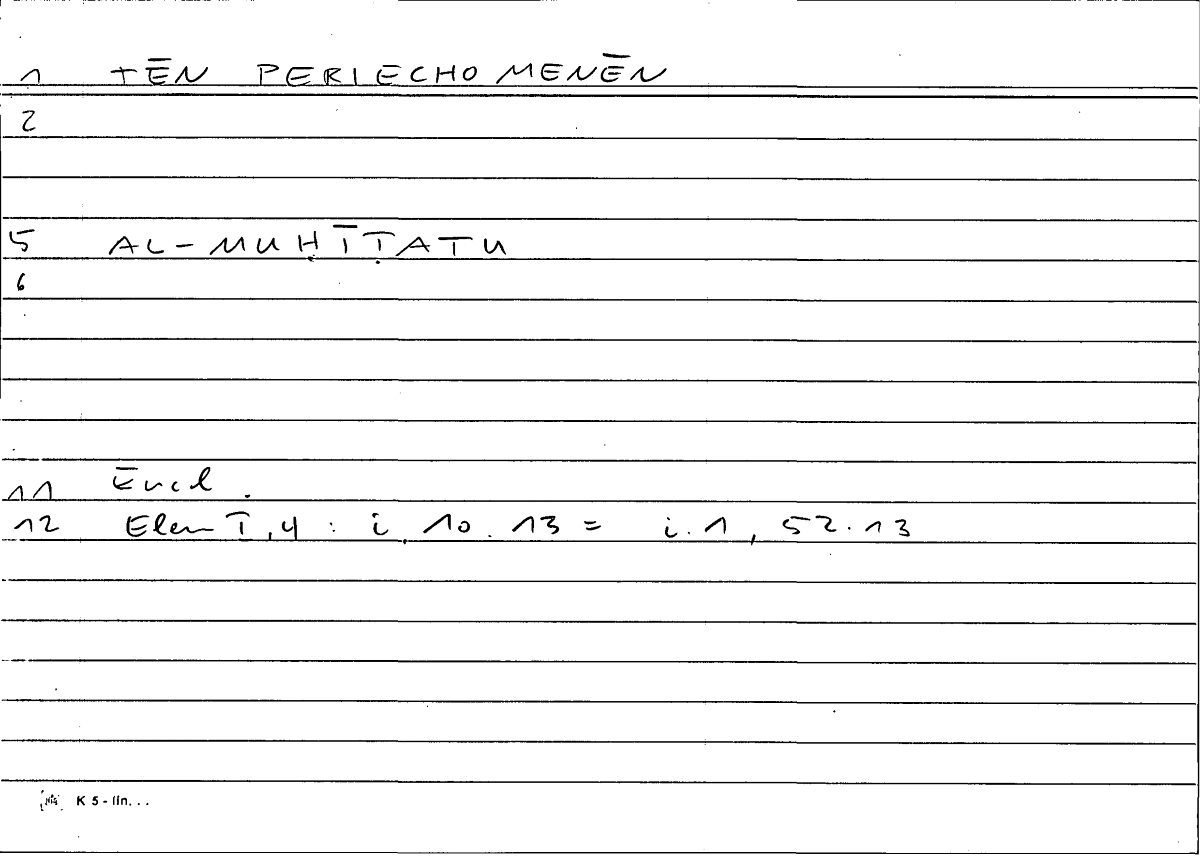 1 TĒN PERIECHOMENĒN
2
5 AL-MUḤĪṬATU
6
11 Eucl.
12 Elem I,4 : i. 10. 13 = i.1, 52.13
K 5 - lin...